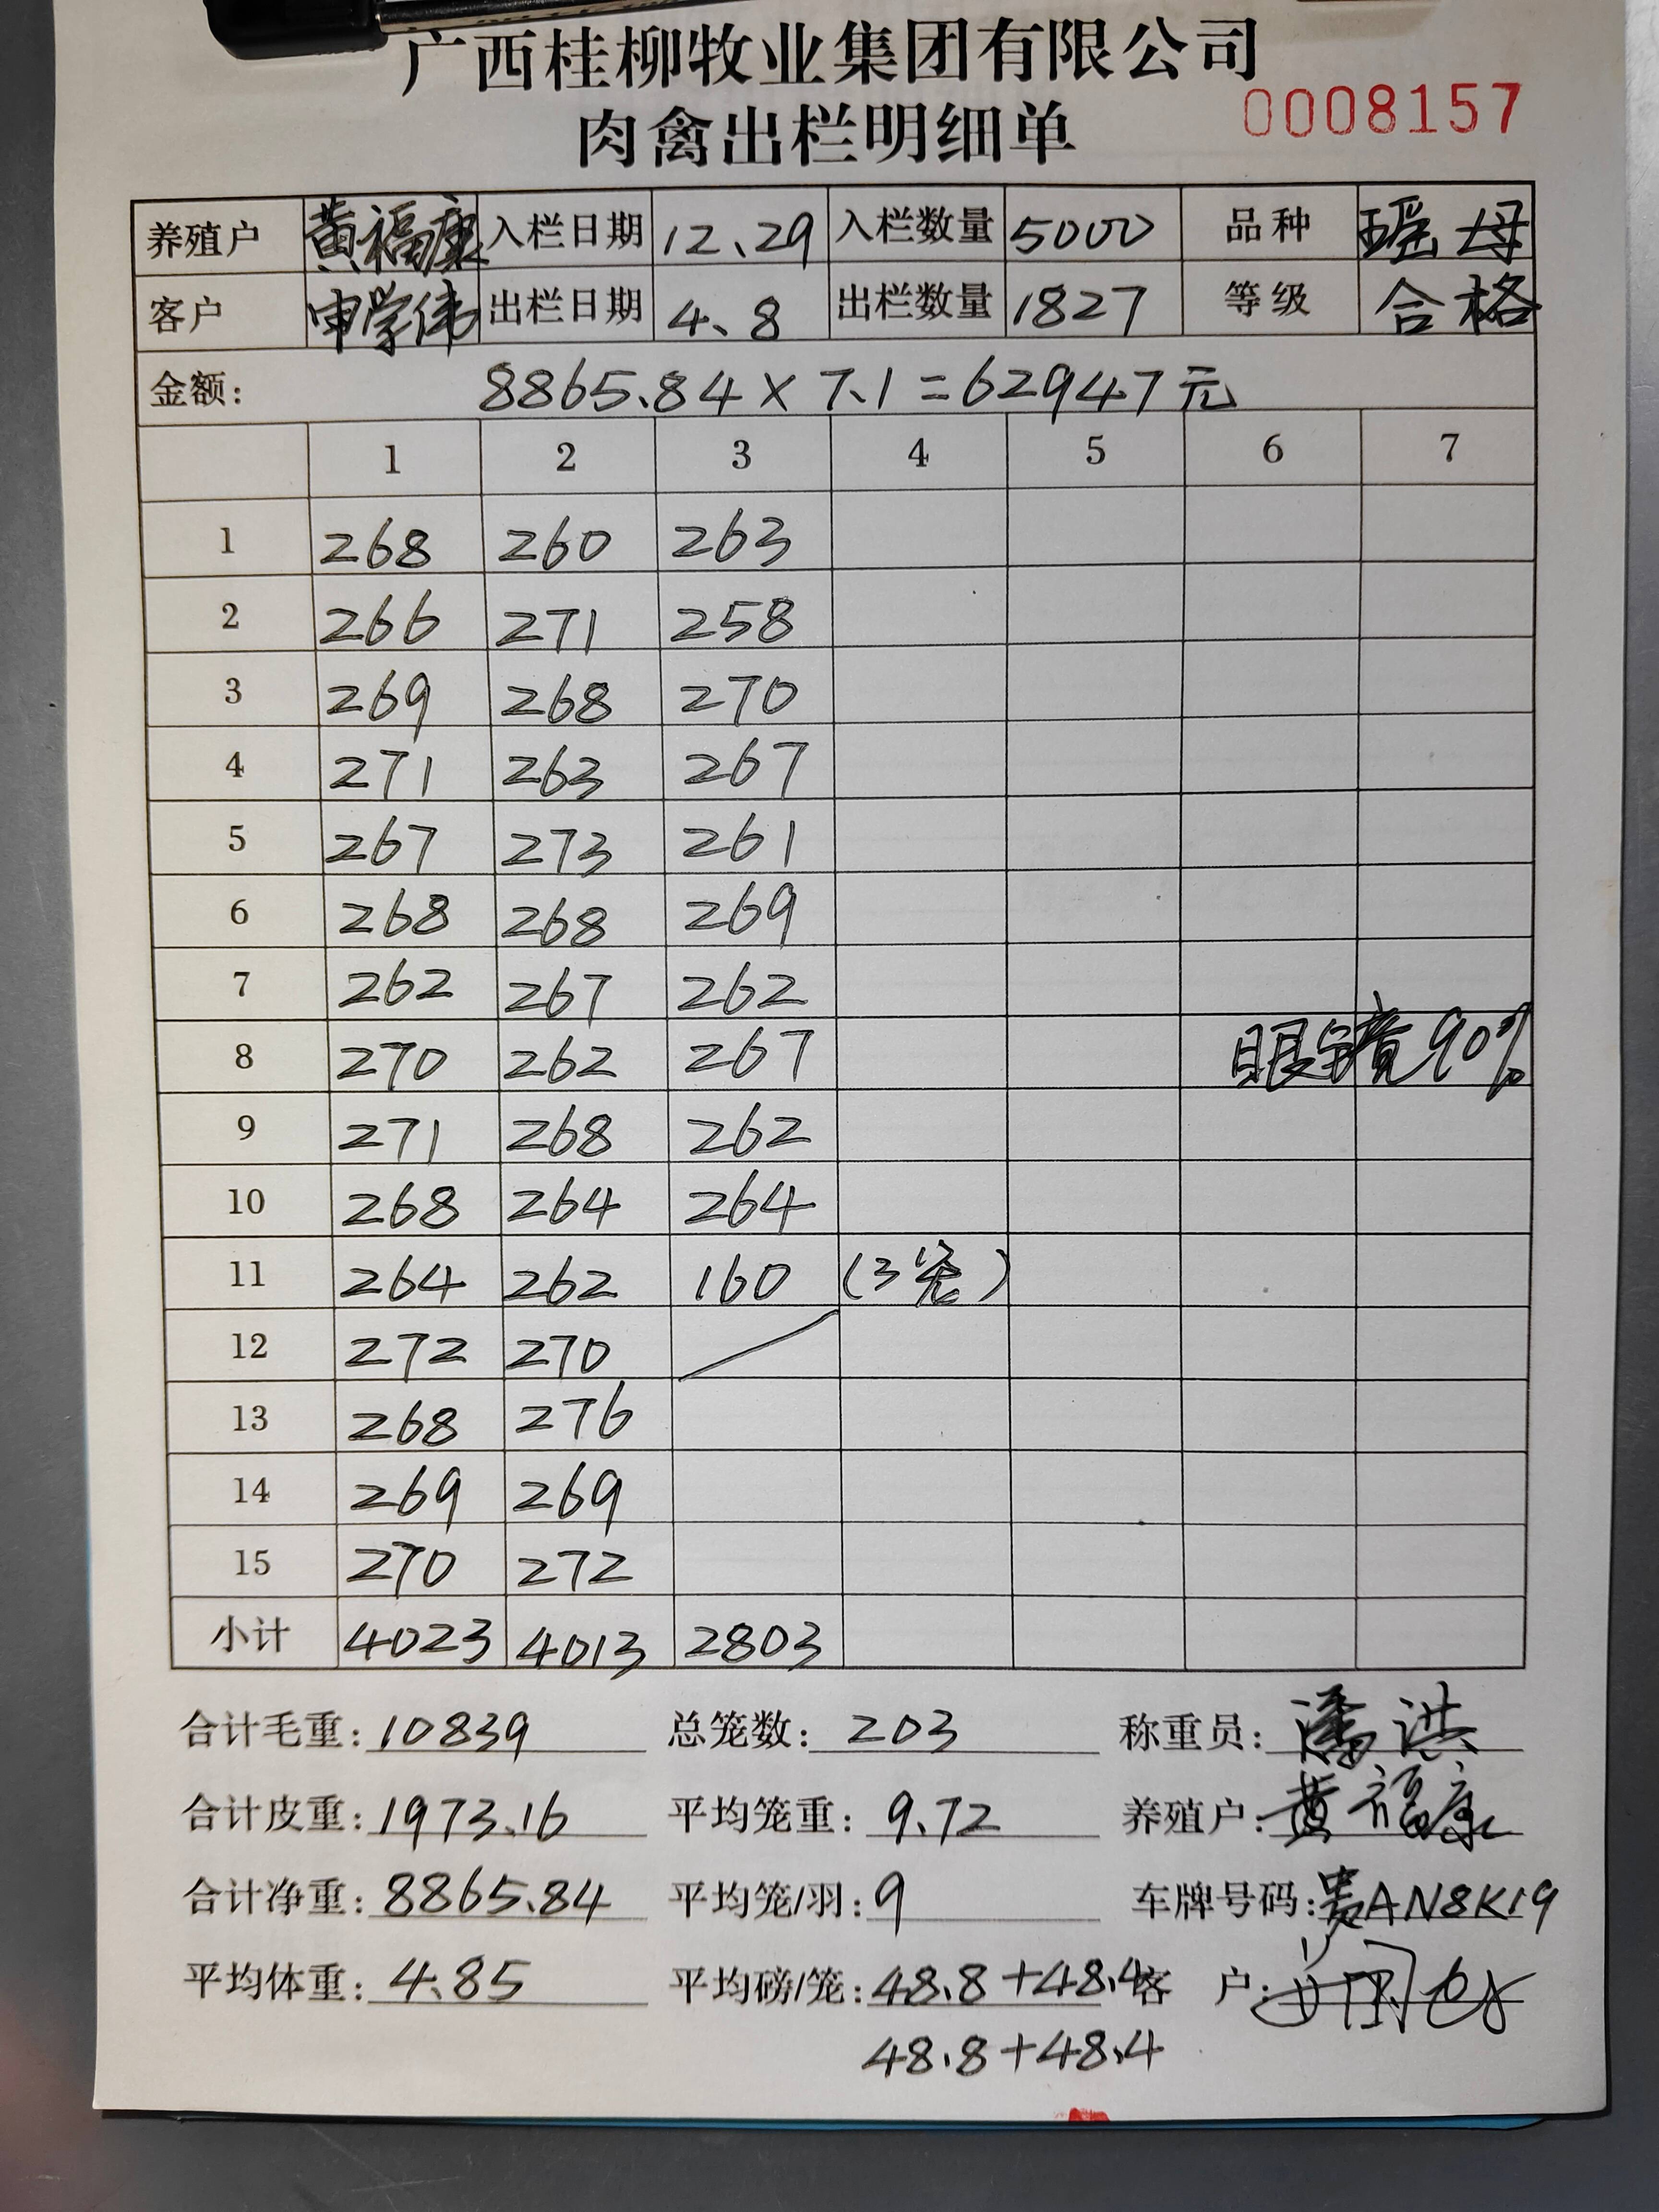 广西桂柳牧业集团有限公司
肉禽出栏明细单 0008157
养殖户 黄福康 入栏日期 12、29 入栏数量 5000 品种 瑶母
客户 申学伟 出栏日期 4、8 出栏数量 1827 等级 合格
金额: 8865.84×7.1=62947元
1 2 3 4 5 6 7
1 268 260 263
2 266 271 258
3 269 268 270
4 271 263 267
5 267 273 261
6 268 268 269
7 262 267 262
8 270 262 267 眼镜90%
9 271 268 262
10 268 264 264
11 264 262 160 (3笼)
12 272 270
13 268 276
14 269 269
15 270 272
小计 4023 4013 2803
合计毛重: 10839 总笼数: 203 称重员: 潘洪
合计皮重: 1973.16 平均笼重: 9.72 养殖户: 黄福康
合计净重: 8865.84 平均笼/羽: 9 车牌号码: 贵AN8K19
平均体重: 4.85 平均磅/笼: 48.8+48.4 客户:
48.8+48.4